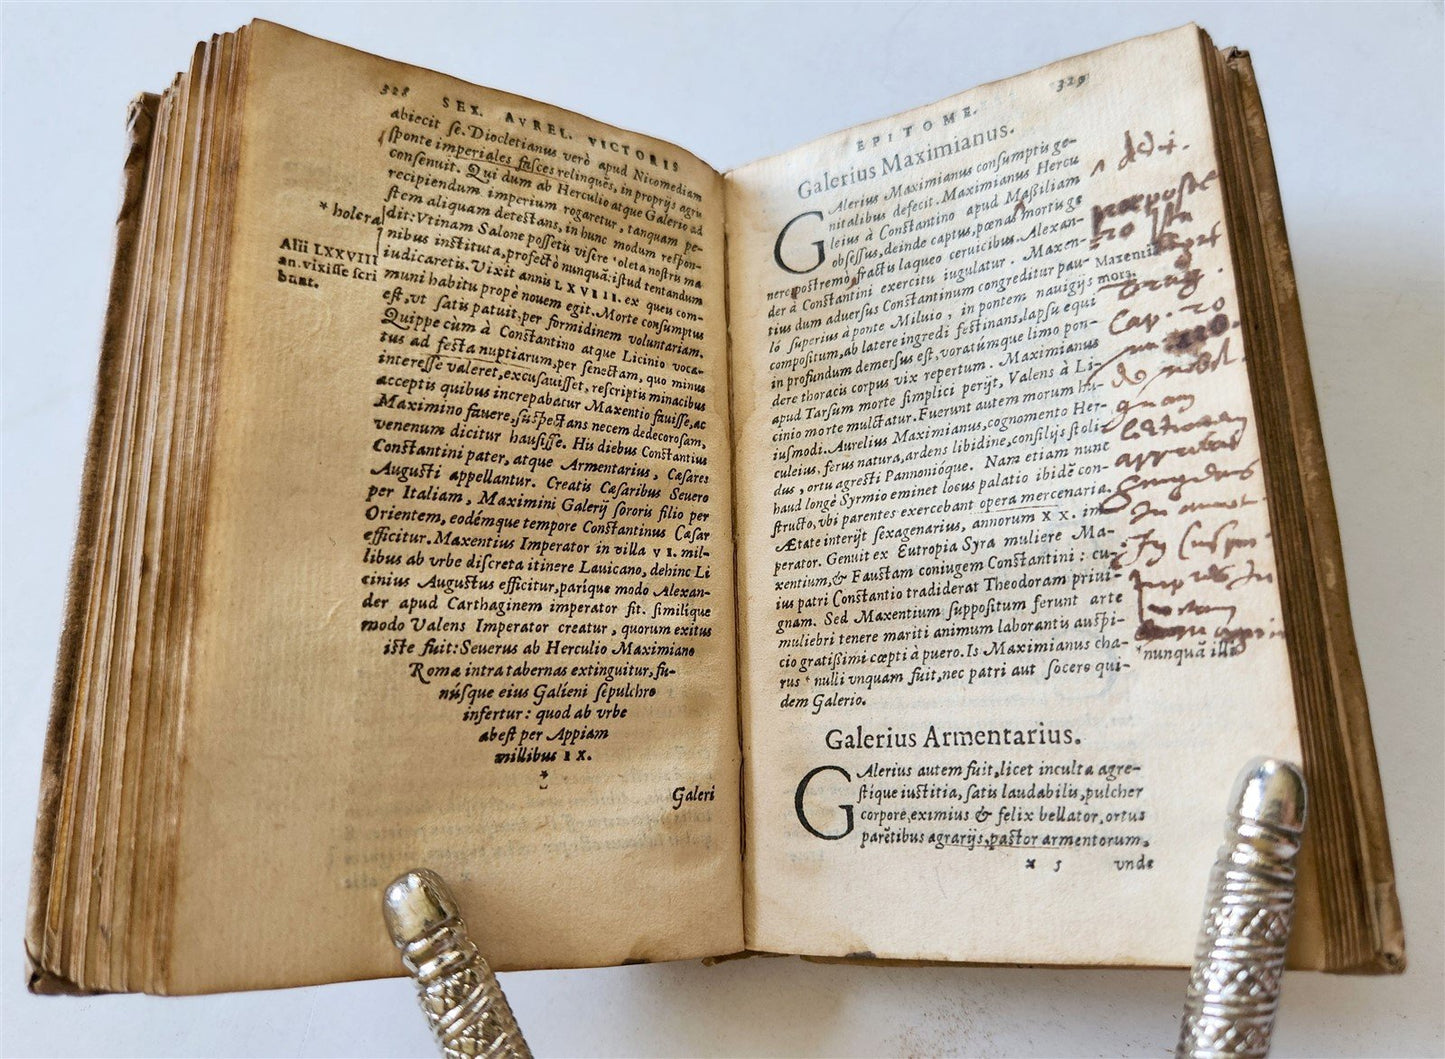 328 SEX. AVREL. VICTORIS
abiecit se. Diocletianus verò apud Nicomediam
sponte imperiales fasces relinquẽs, in proprijs agris
consenuit. Qui dum ab Herculio atque Galerio ad
recipiendum imperium rogaretur, tanquam pe-
stem aliquam detestans, in hunc modum respon-
* holera
dit: Vtinam Salonę possetis visere * oleta nostris ma
nibus instituta, profectò nunquã istud tentandum
Alii LXXVIII
an. vixisse scri
bunt.
iudicaretis. Vixit annis LXVIII. ex queis com-
muni habitu propè nouem egit. Morte consumptus
est, vt satis patuit, per formidinem voluntariam.
Quippe cùm à Constantino atque Licinio voca-
tus ad festa nuptiarum, per senectam, quo minus
interesse valeret, excusauisset, rescriptis minacibus
acceptis quibus increpabatur Maxentio fauisse, ac
Maximino fauere, suspectans necem dedecorosam,
venenum dicitur hausisse. His diebus Constantius
Constantini pater, atque Armentarius, Cæsares
Augusti appellantur. Creatis Cæsaribus Seuero
per Italiam, Maximini Galerij sororis filio per
Orientem, eodémque tempore Constantinus Cæsar
efficitur. Maxentius Imperator in villa VI. mil-
libus ab vrbe discreta itinere Lauicano, dehinc Li
cinius Augustus efficitur, parique modo Alexan-
der apud Carthaginem imperator fit. similique
modo Valens Imperator creatur, quorum exitus
iste fuit: Seuerus ab Herculio Maximiano
Romæ intra tabernas extinguitur, fu-
núsque eius Galieni sepulchro
infertur: quod ab vrbe
abest per Appiam
millibus IX.
*
Galeri
EPITOME. 329
Galerius Maximianus.
GAlerius Maximianus consumptis ge-
nitalibus defecit. Maximianus Hercu
leius à Constantino apud Maßiliam
obsessus, deinde captus, pœnas mortis ge
nere postremo, fractis laqueo ceruicibus. Alexan-
der à Constantini exercitu iugulatur. Maxen-
Maxentii
mors.
tius dum aduersus Constantinum congreditur pau
lò superius à ponte Miluio, in pontem nauigijs
compositum, ab latere ingredi festinans, lapsu equi
in profundum demersus est, voratúmque limo pon-
dere thoracis corpus vix repertum. Maximianus
apud Tarsum morte simplici perijt, Valens à Li-
cinio morte mulctatur. Fuerunt autem morum hu-
iusmodi. Aurelius Maximianus, cognomento Her-
culeius, ferus natura, ardens libidine, consilijs stoli
dus, ortu agresti Pannonióque. Nam etiam nunc
haud longè Syrmio eminet locus palatio ibidẽ con-
structo, vbi parentes exercebant opera mercenaria.
Ætate interijt sexagenarius, annorum XX. im-
perator. Genuit ex Eutropia Syra muliere Ma-
xentium, & Faustam coniugem Constantini: cu-
ius patri Constantio tradiderat Theodoram priui-
gnam. Sed Maxentium suppositum ferunt arte
muliebri tenere mariti animum laborantis auspi-
cio gratißimi cœpti à puero. Is Maximianus cha-
rus * nulli vnquam fuit, nec patri aut socero qui-
* nunquã illi
dem Galerio.
Galerius Armentarius.
GAlerius autem fuit, licet inculta agre-
stique iustitia, satis laudabilis, pulcher
corpore, eximius & felix bellator, ortus
parẽtibus agrarijs, pastor armentorum,
x 5 vnde